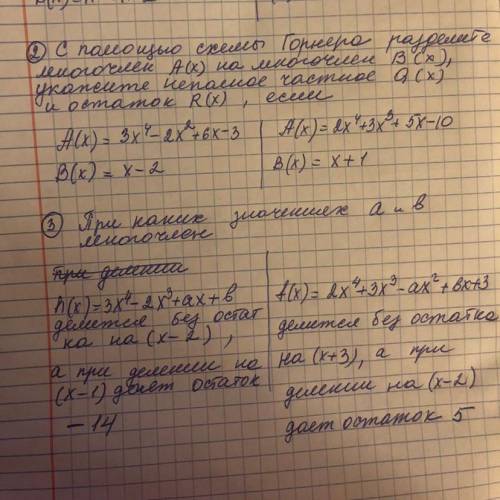 ② С помощью схемы Горнера разделите
многочлен A(x) на многочлен B(x),
укажите неполное частное Q(x)
и остаток R(x), если
A(x) = 3x⁴-2x²+6x-3
B(x) = x-2
A(x) = 2x⁴+3x³+5x-10
B(x) = x+1
③ При каких значениях a и b
многочлен
при делении
A(x)=3x⁴-2x³+ax+b
делится без остат
ка на (x-2),
а при делении на
(x-1) дает остаток
-14
A(x) = 2x⁴+3x³-ax²+bx+3
делится без остатка
на (x+3), а при
делении на (x-2)
дает остаток 5